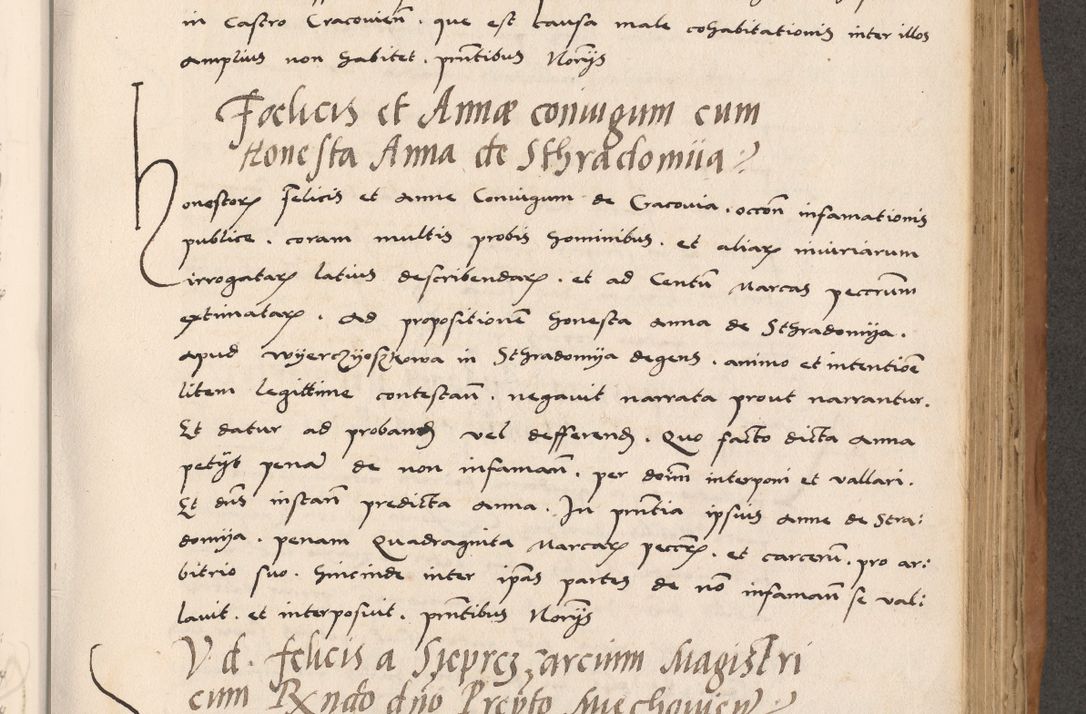 in Castro Cracovień. que est causa male cohabitationis inter illos
amplius non habitet. pńtibus Norijs
Fœlicis et Annæ coniugum cum
Honesta Anna de Sthradomiia
Honestorꝝ Felicis et Anne Coniugum de Cracovia. occoń infamationis
publice. coram multis probis hominibus. et aliarꝝ iniuriarum
irrogatarꝝ latius describendarꝝ. et ad Centū Marcas peccrum̄
extimatarꝝ. Ad propositionē honesta Anna de Sthradomija.
apud Wyerczijoszkowa in Sthradomija degens. animo et intentiōe
litem legittime contestań. negavit narrata prout narrantur.
Et datur ad probanđ vel defferenđ. Quo facto dicta Anna
petijt penā de non infamań. per dom̄ interponi et vallari.
Et dńs instań predicta Anna. In pńtia ipsius Anne de Stra:
domija. penam Quadraginta Marcarꝝ peccrꝝ. et carcerū. pro ar:
bitrio suo. hincinde inter ip̄as partes de nō infamań se val:
lavit. et interposuit. pńtibus Norijs
V d. felicis a Sijeprcz, arcium Magistri
cum Rx̄ndo dńo Prep̄to Miechovień